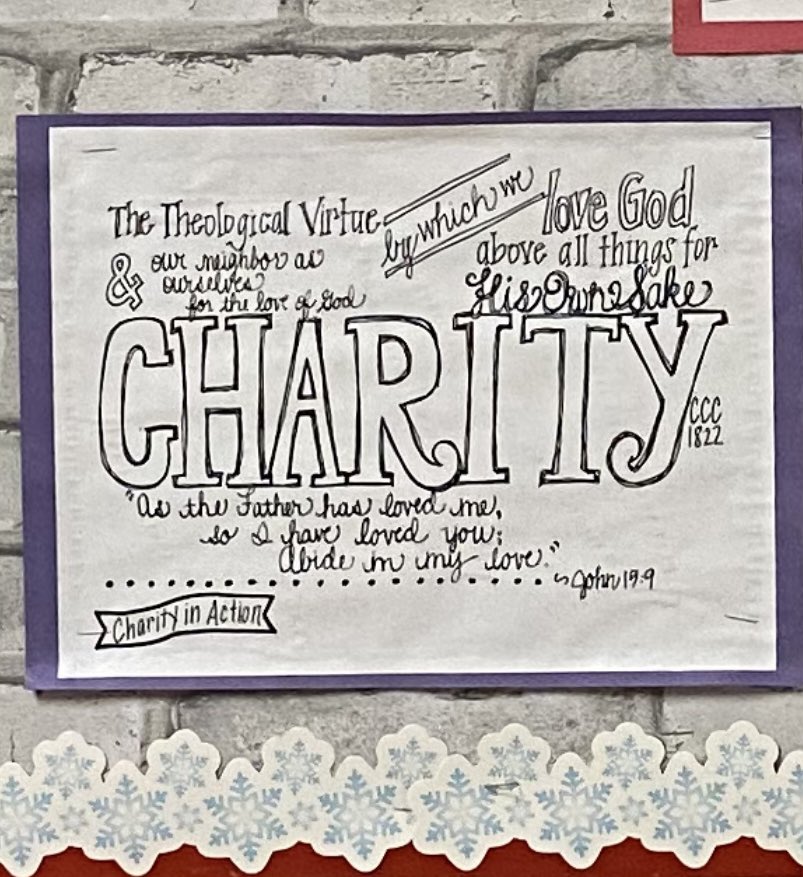 The Theological Virtue
by which we
love God
above all things for
His Own Sake
& our neighbor as
ourselves
for the love of God
CHARITY
CCC
1822
"As the Father has loved me,
so I have loved you;
Abide in my love."
~John 15:9
Charity in Action